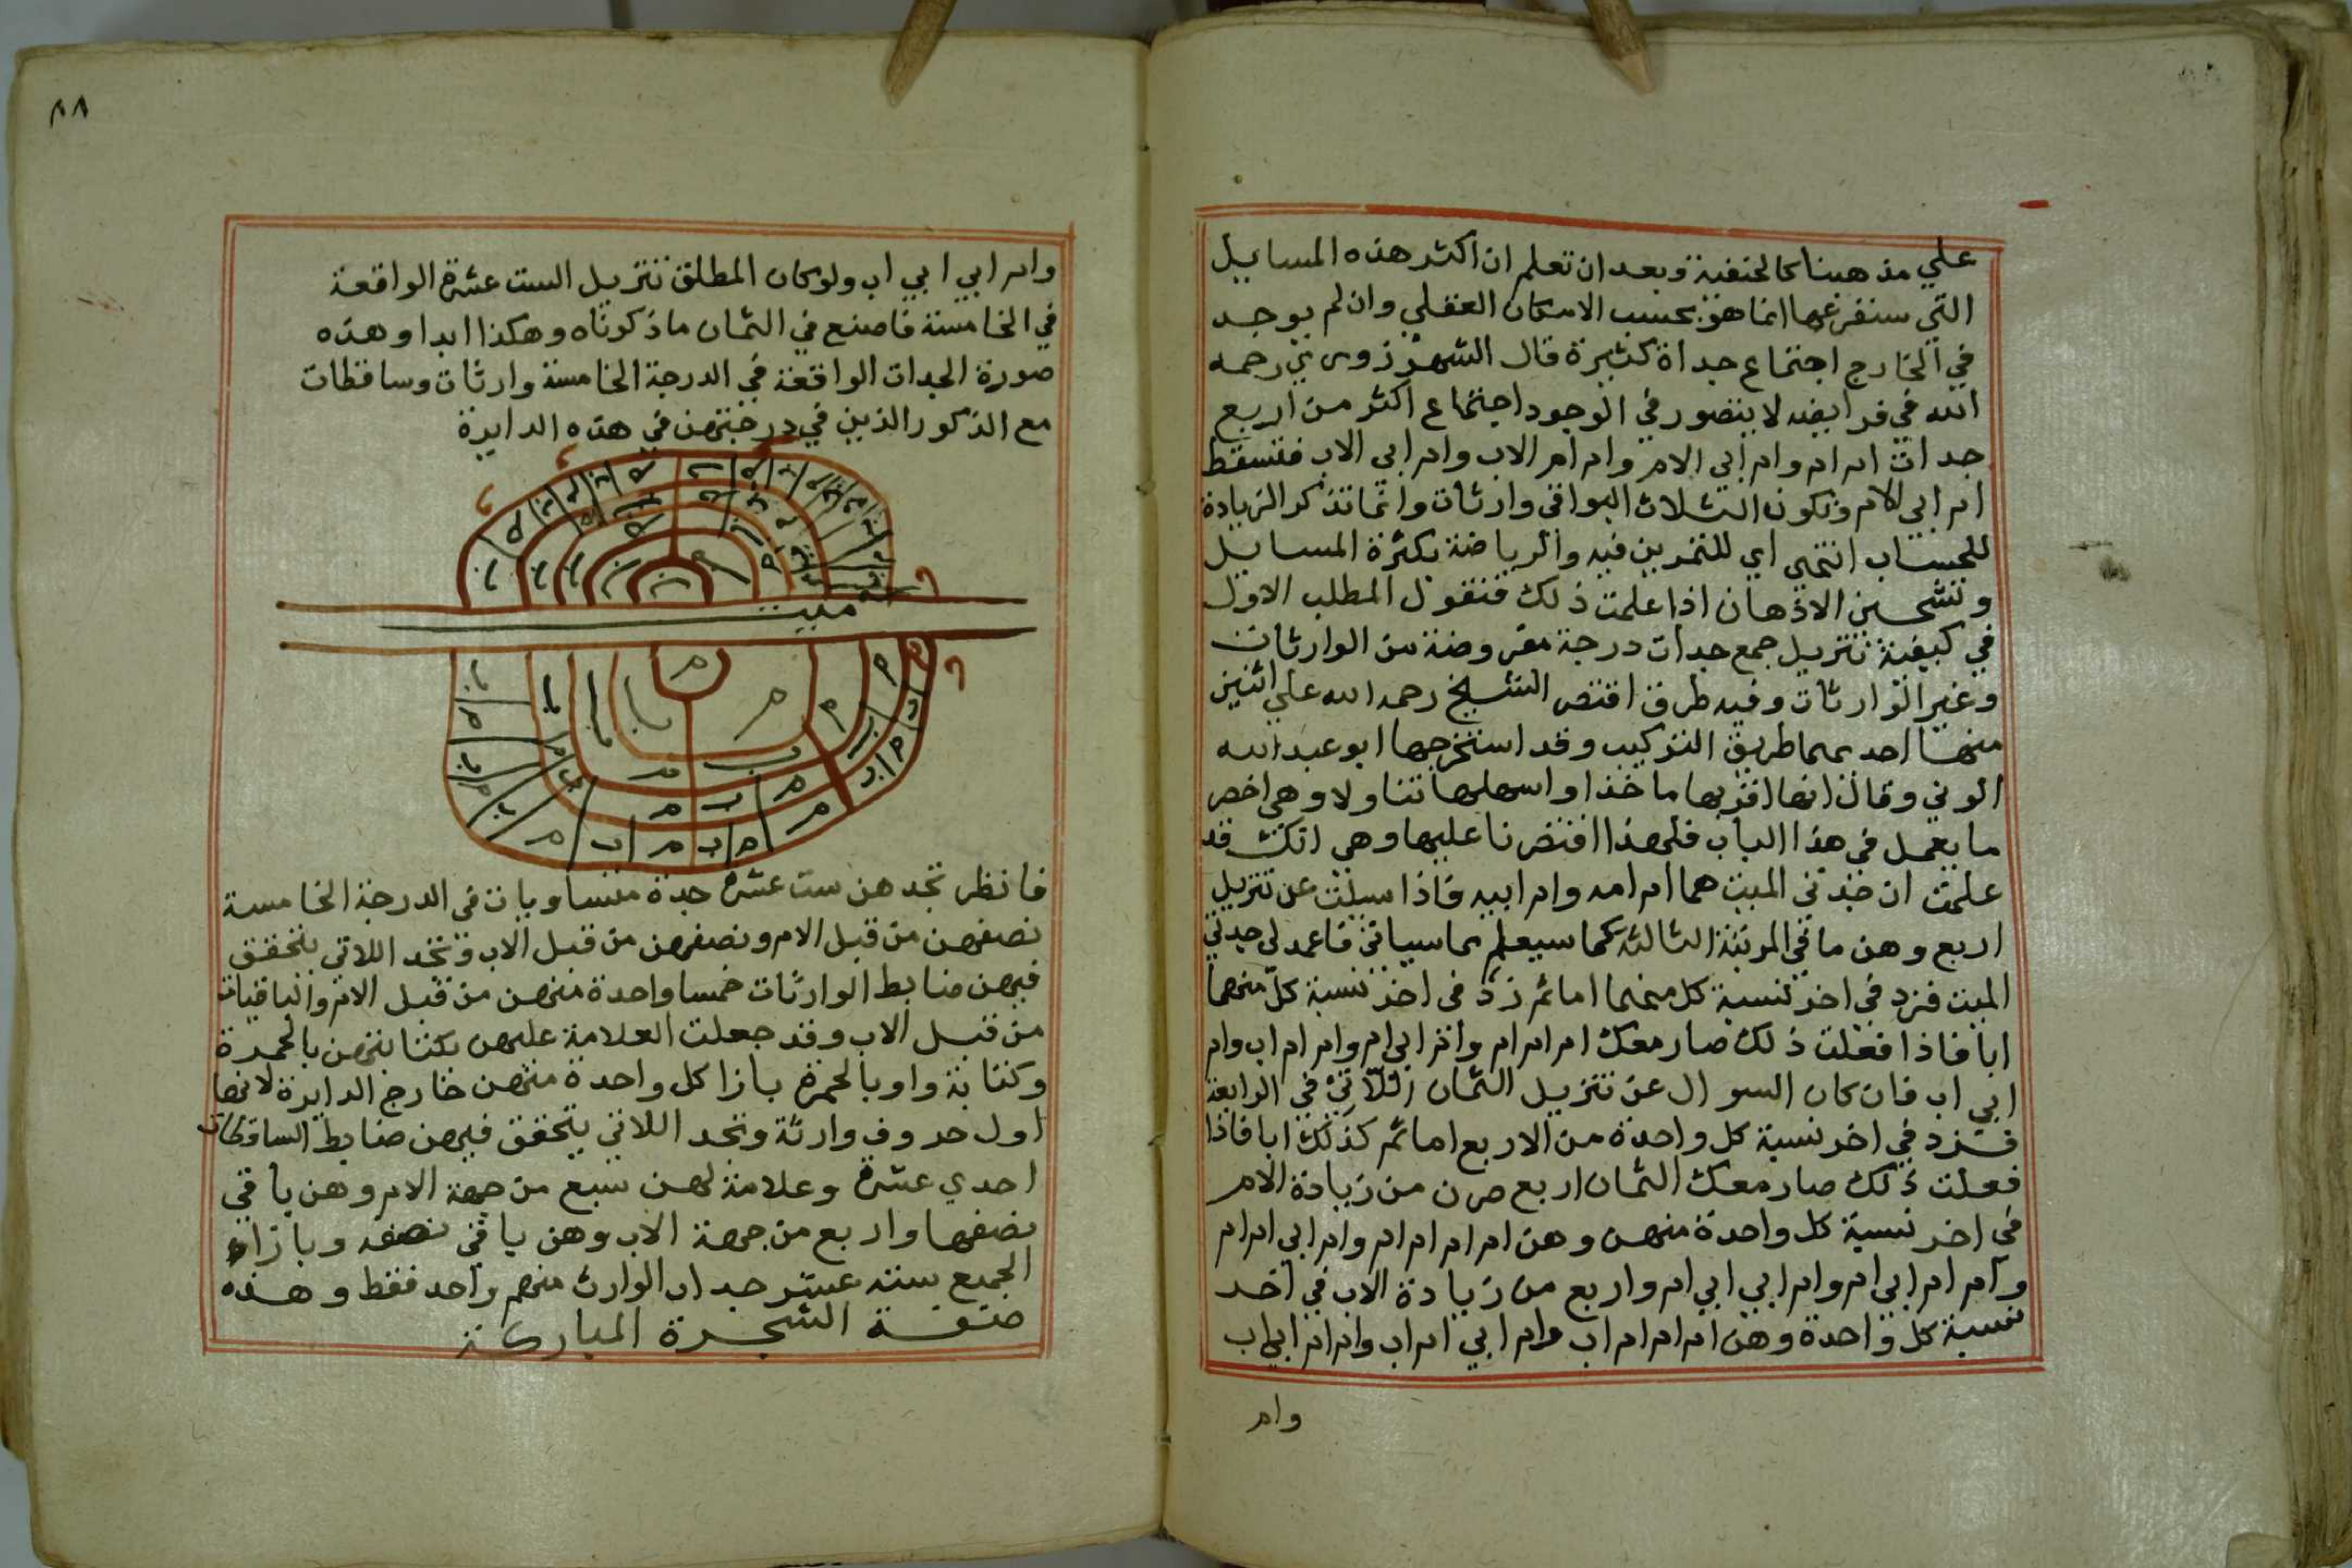 علي مذهبنا كالحنفية وبعد ان تعلم ان اكثر هذه المسايل
التي سنفرعها انما هو بحسب الامكان العقلي وان لم يوجد
في الخارج اجتماع جداة كثيرة قال الشهرزوري رحمه
الله في فرايضه لا يتصور في الوجود اجتماع اكثر من اربع
جدات ام ام وام ابي الام وام ام الاب وام ابي الاب فتسقط
ام ابي الام وتكون الثلاث البواقي وارثات وانما تذكر الزيادة
للحساب انتهي اي للتمرين فيه والرياضة بكثرة المسايل
وتشحين الاذهان اذا علمت ذلك فنقول المطلب الاول
في كيفية تنزيل جمع جدات درجة مفروضة من الوارثات
وغير الوارثات وفيه طرق اقتصر الشيخ رحمه الله علي اثنين
منها احديهما طريق التركيب وقد استخرجها ابو عبد الله
الوني وقال انها اقربها ماخذا واسهلها تناولا وهي اخصر
ما يعمل في هذا الباب فلهذا اقتصرنا عليها وهي انك قد
علمت ان جدتي الميت هما ام امه وام ابيه فاذا سيلت عن تنزيل
اربع وهن ما في المرتبة الثالثة كما سيعلم مما سياتي فاعمد لي جدتي
الميت فزد في اخر نسبة كل منهما اما ثم زد في اخر نسبة كل منهما
ابا فاذا فعلت ذلك صار معك ام ام ام وام ابي ام وام ام اب وام
ابي اب فان كان السوال عن تنزيل الثمان اللاتي في الرابعة
فزد في اخر نسبة كل واحدة من الاربع اما ثم كذلك ابا فاذا
فعلت ذلك صار معك الثمان اربع صرن من زيادة الام
في اخر نسبة كل واحدة منهن وهن ام ام ام ام وام ابي ام ام
وام ام ابي ام وام ابي ابي ام واربع من زيادة الاب في اخر
نسبة كل واحدة وهن ام ام ام اب وام ابي ام اب وام ام ابي اب
وام
٨٨
وام ابي ابي اب ولو كان المطلق تنزيل الست عشرة الواقعة
في الخامسة فاصنع في الثمان ما ذكرناه وهكذا ابدا وهذه
صورة الجدات الواقعة في الدرجة الخامسة وارثات وساقطات
مع الذكور الذين في درجتهن في هذه الدايرة
ميت
فانظر تجد هن ست عشرة جدة متساويات في الدرجة الخامسة
نصفهن من قبل الام ونصفهن من قبل الاب وتجد اللاتي يتحقق
فيهن ضابط الوارثات خمسا واحدة منهن من قبل الام والباقيات
من قبل الاب وقد جعلت العلامة عليهن بكتابتهن بالحمرة
وكتابة واو بالحمرة بازا كل واحدة منهن خارج الدايرة لانها
اول حروف وارثة وتجد اللاتي يتحقق فيهن ضابط الساقطات
احدي عشرة وعلامة لهن سبع من جهة الام وهن باقي
نصفها واربع من جهة الاب وهن باقي نصفه وبازاء
الجميع ستة عشر جدا الوارث منهم واحد فقط وهذه
صفة الشجرة المباركة